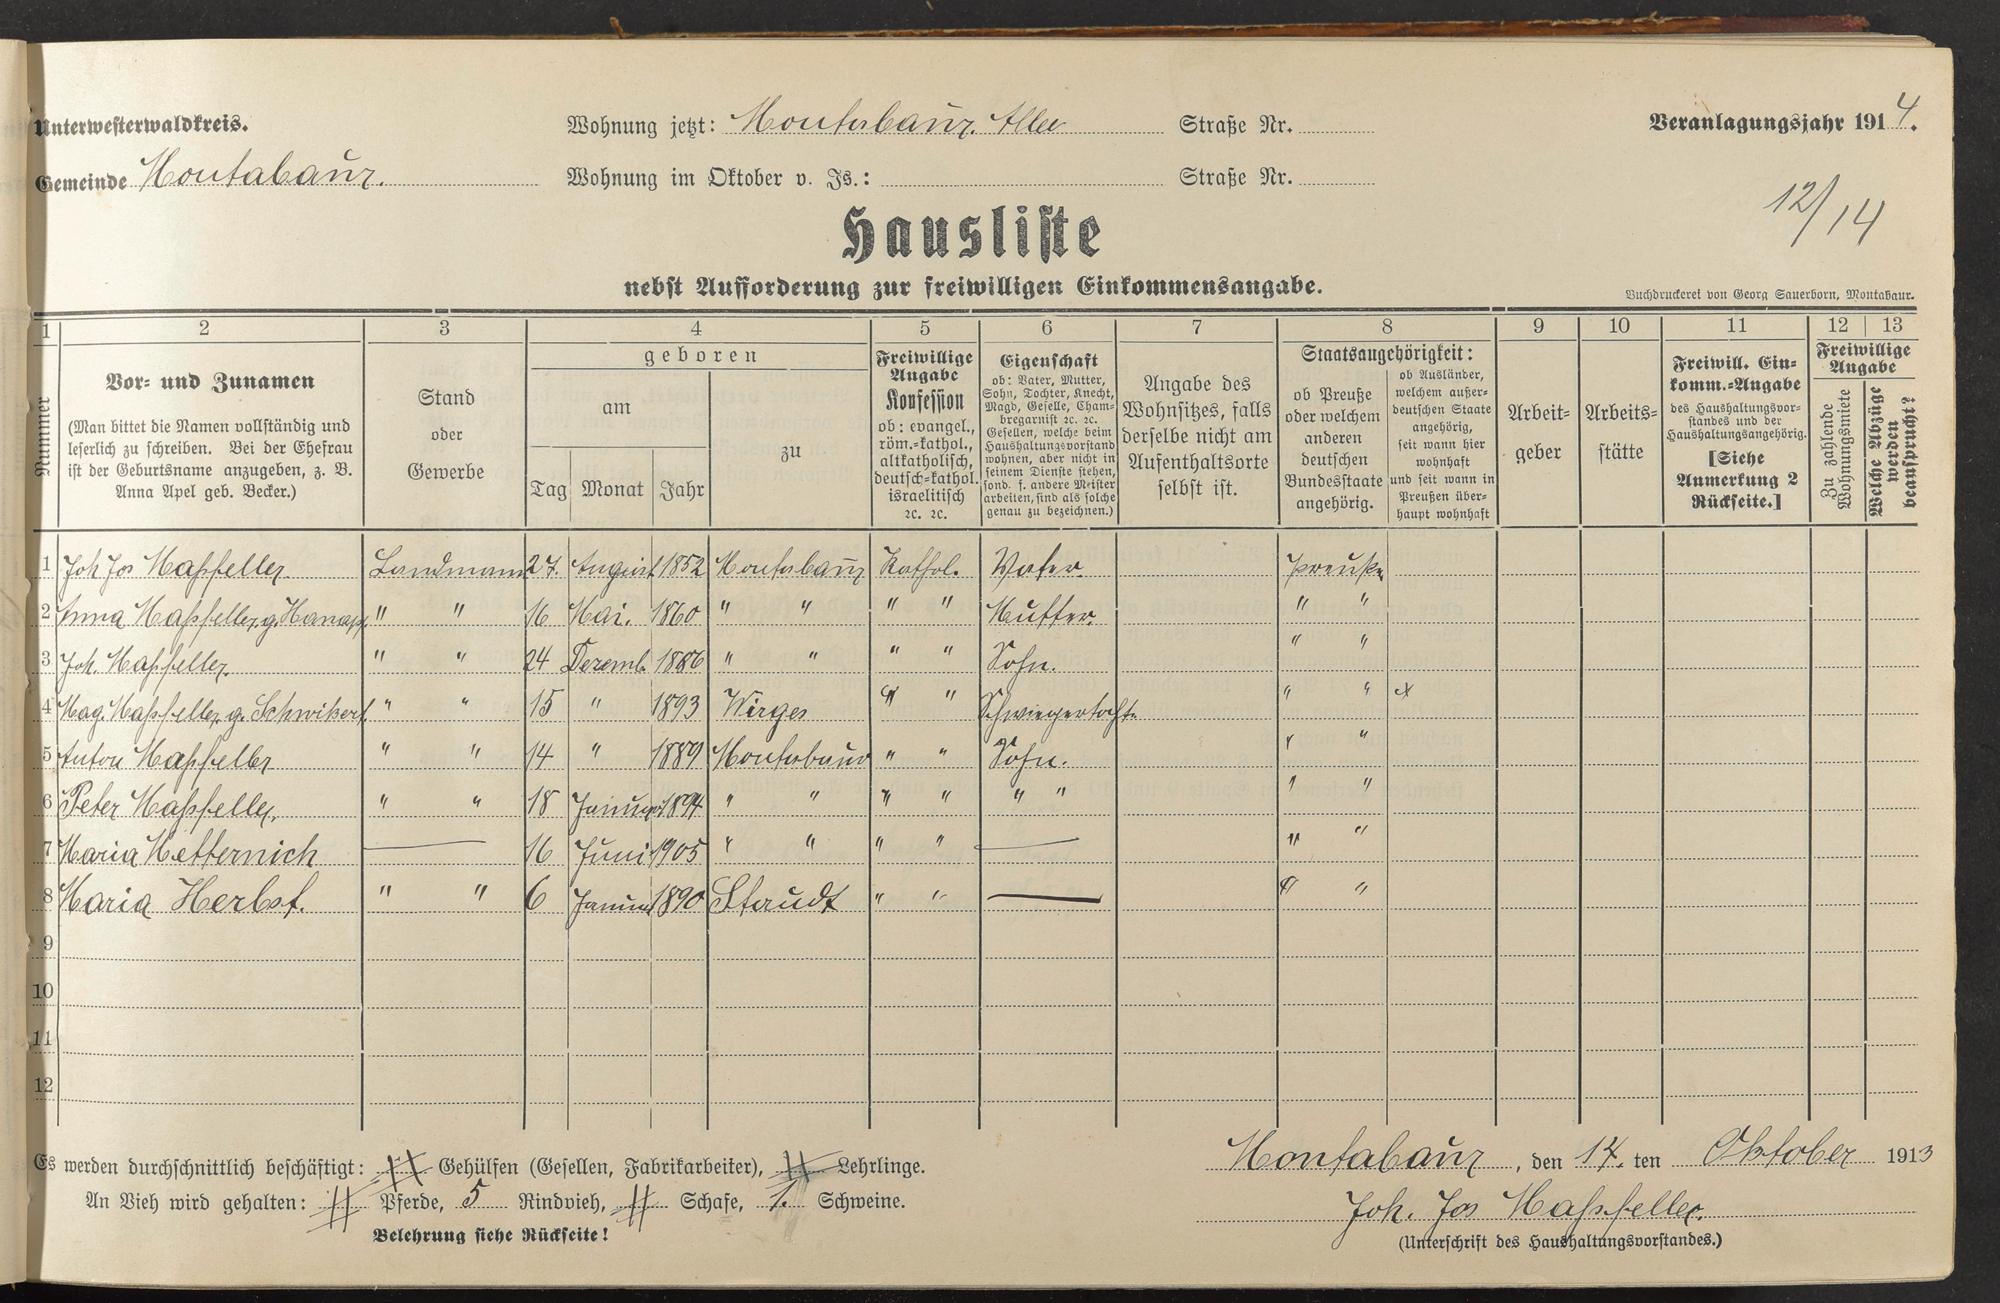 Unterwesterwaldkreis.
Wohnung jetzt: Montabaur. Allee Straße Nr.
Veranlagungsjahr 1914.
Gemeinde Montabaur.
Wohnung im Oktober v. Js.: Straße Nr.
12/14
Hausliste
nebst Aufforderung zur freiwilligen Einkommensangabe.
Buchdruckerei von Georg Sauerborn, Montabaur.
1 2 3 4 5 6 7 8 9 10 11 12 13
Nummer
Vor- und Zunamen
(Man bittet die Namen vollständig und
leserlich zu schreiben. Bei der Ehefrau
ist der Geburtsname anzugeben, z. B.
Anna Apel geb. Becker.)
Stand
oder
Gewerbe
geboren
am
Tag Monat Jahr
zu
Freiwillige
Angabe
Konfession
ob: evangel.,
röm.-kathol.,
altkatholisch,
deutsch-kathol.
israelitisch
ꝛc. ꝛc.
Eigenschaft
ob: Vater, Mutter,
Sohn, Tochter, Knecht,
Magd, Geselle, Cham-
bregarnist ꝛc. ꝛc.
Gesellen, welche beim
Haushaltungsvorstand
wohnen, aber nicht in
seinem Dienste stehen,
sond. f. andere Meister
arbeiten, sind als solche
genau zu bezeichnen.)
Angabe des
Wohnsitzes, falls
derselbe nicht am
Aufenthaltsorte
selbst ist.
Staatsangehörigkeit:
ob Preuße
oder welchem
anderen
deutschen
Bundesstaate
angehörig.
ob Ausländer,
welchem außer-
deutschen Staate
angehörig,
seit wann hier
wohnhaft
und seit wann in
Preußen über-
haupt wohnhaft
Arbeit-
geber
Arbeits-
stätte
Freiwill. Ein-
komm.-Angabe
des Haushaltungsvor-
standes und der
Haushaltungsangehörig.
[Siehe
Anmerkung 2
Rückseite.]
Freiwillige
Angabe
Zu zahlende
Wohnungsmiete
Welche Abzüge
werden
beansprucht?
1 Joh Jos Kaßfeller. Landmann 27. August 1852 Montabaur Kathol. Vater. Preuße
2 Anna Kaßfeller, g. Hanapp " " 16 Mai. 1860 " " " " Mutter. " "
3 Joh. Kaßfeller. " " 24 Dezemb. 1886 " " " " Sohn. " "
4 Mag. Kaßfeller, g. Schwikert " " 15 " 1893 Wirges " " Schwiegertochter " "
5 Anton Kaßfeller " " 14 " 1889 Montabaur " " Sohn. " "
6 Peter Kaßfeller, " " 18 Januar 1894 " " " " " " " "
7 Maria Metternich — 16 Juni 1905 " " " " — " "
8 Maria Herbst. " " 6 Januar 1890 Staudt " " — " "
9
10
11
12
Es werden durchschnittlich beschäftigt: Gehülfen (Gesellen, Fabrikarbeiter), Lehrlinge.
An Vieh wird gehalten: Pferde, 5 Rindvieh, Schafe, 1. Schweine.
Belehrung siehe Rückseite!
Montabaur, den 17. ten Oktober 1913
Joh. Jos Kaßfeller.
(Unterschrift des Haushaltungsvorstandes.)